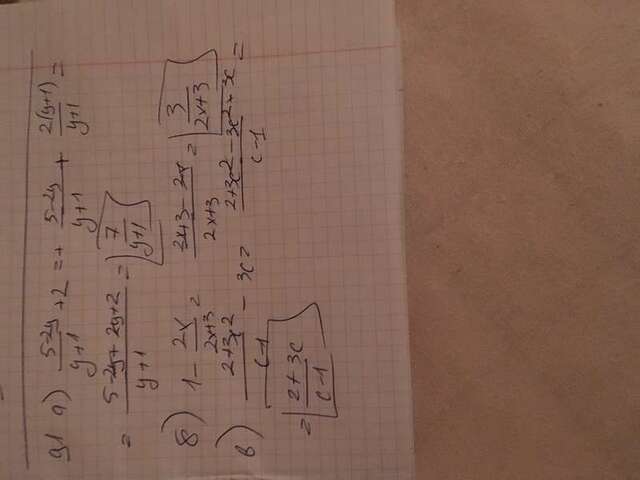 91 а) (5-2y)/(y+1) + 2 = + (5-2y)/(y+1) + 2(y+1)/(y+1) =
= (5-2y+2y+2)/(y+1) = 7/(y+1)
б) 1 - 2x/(2x+3) = (2x+3-2x)/(2x+3) = 3/(2x+3)
в) (2+3c²)/(c-1) - 3c = (2+3c²-3c²+3c)/(c-1) =
= (2+3c)/(c-1)